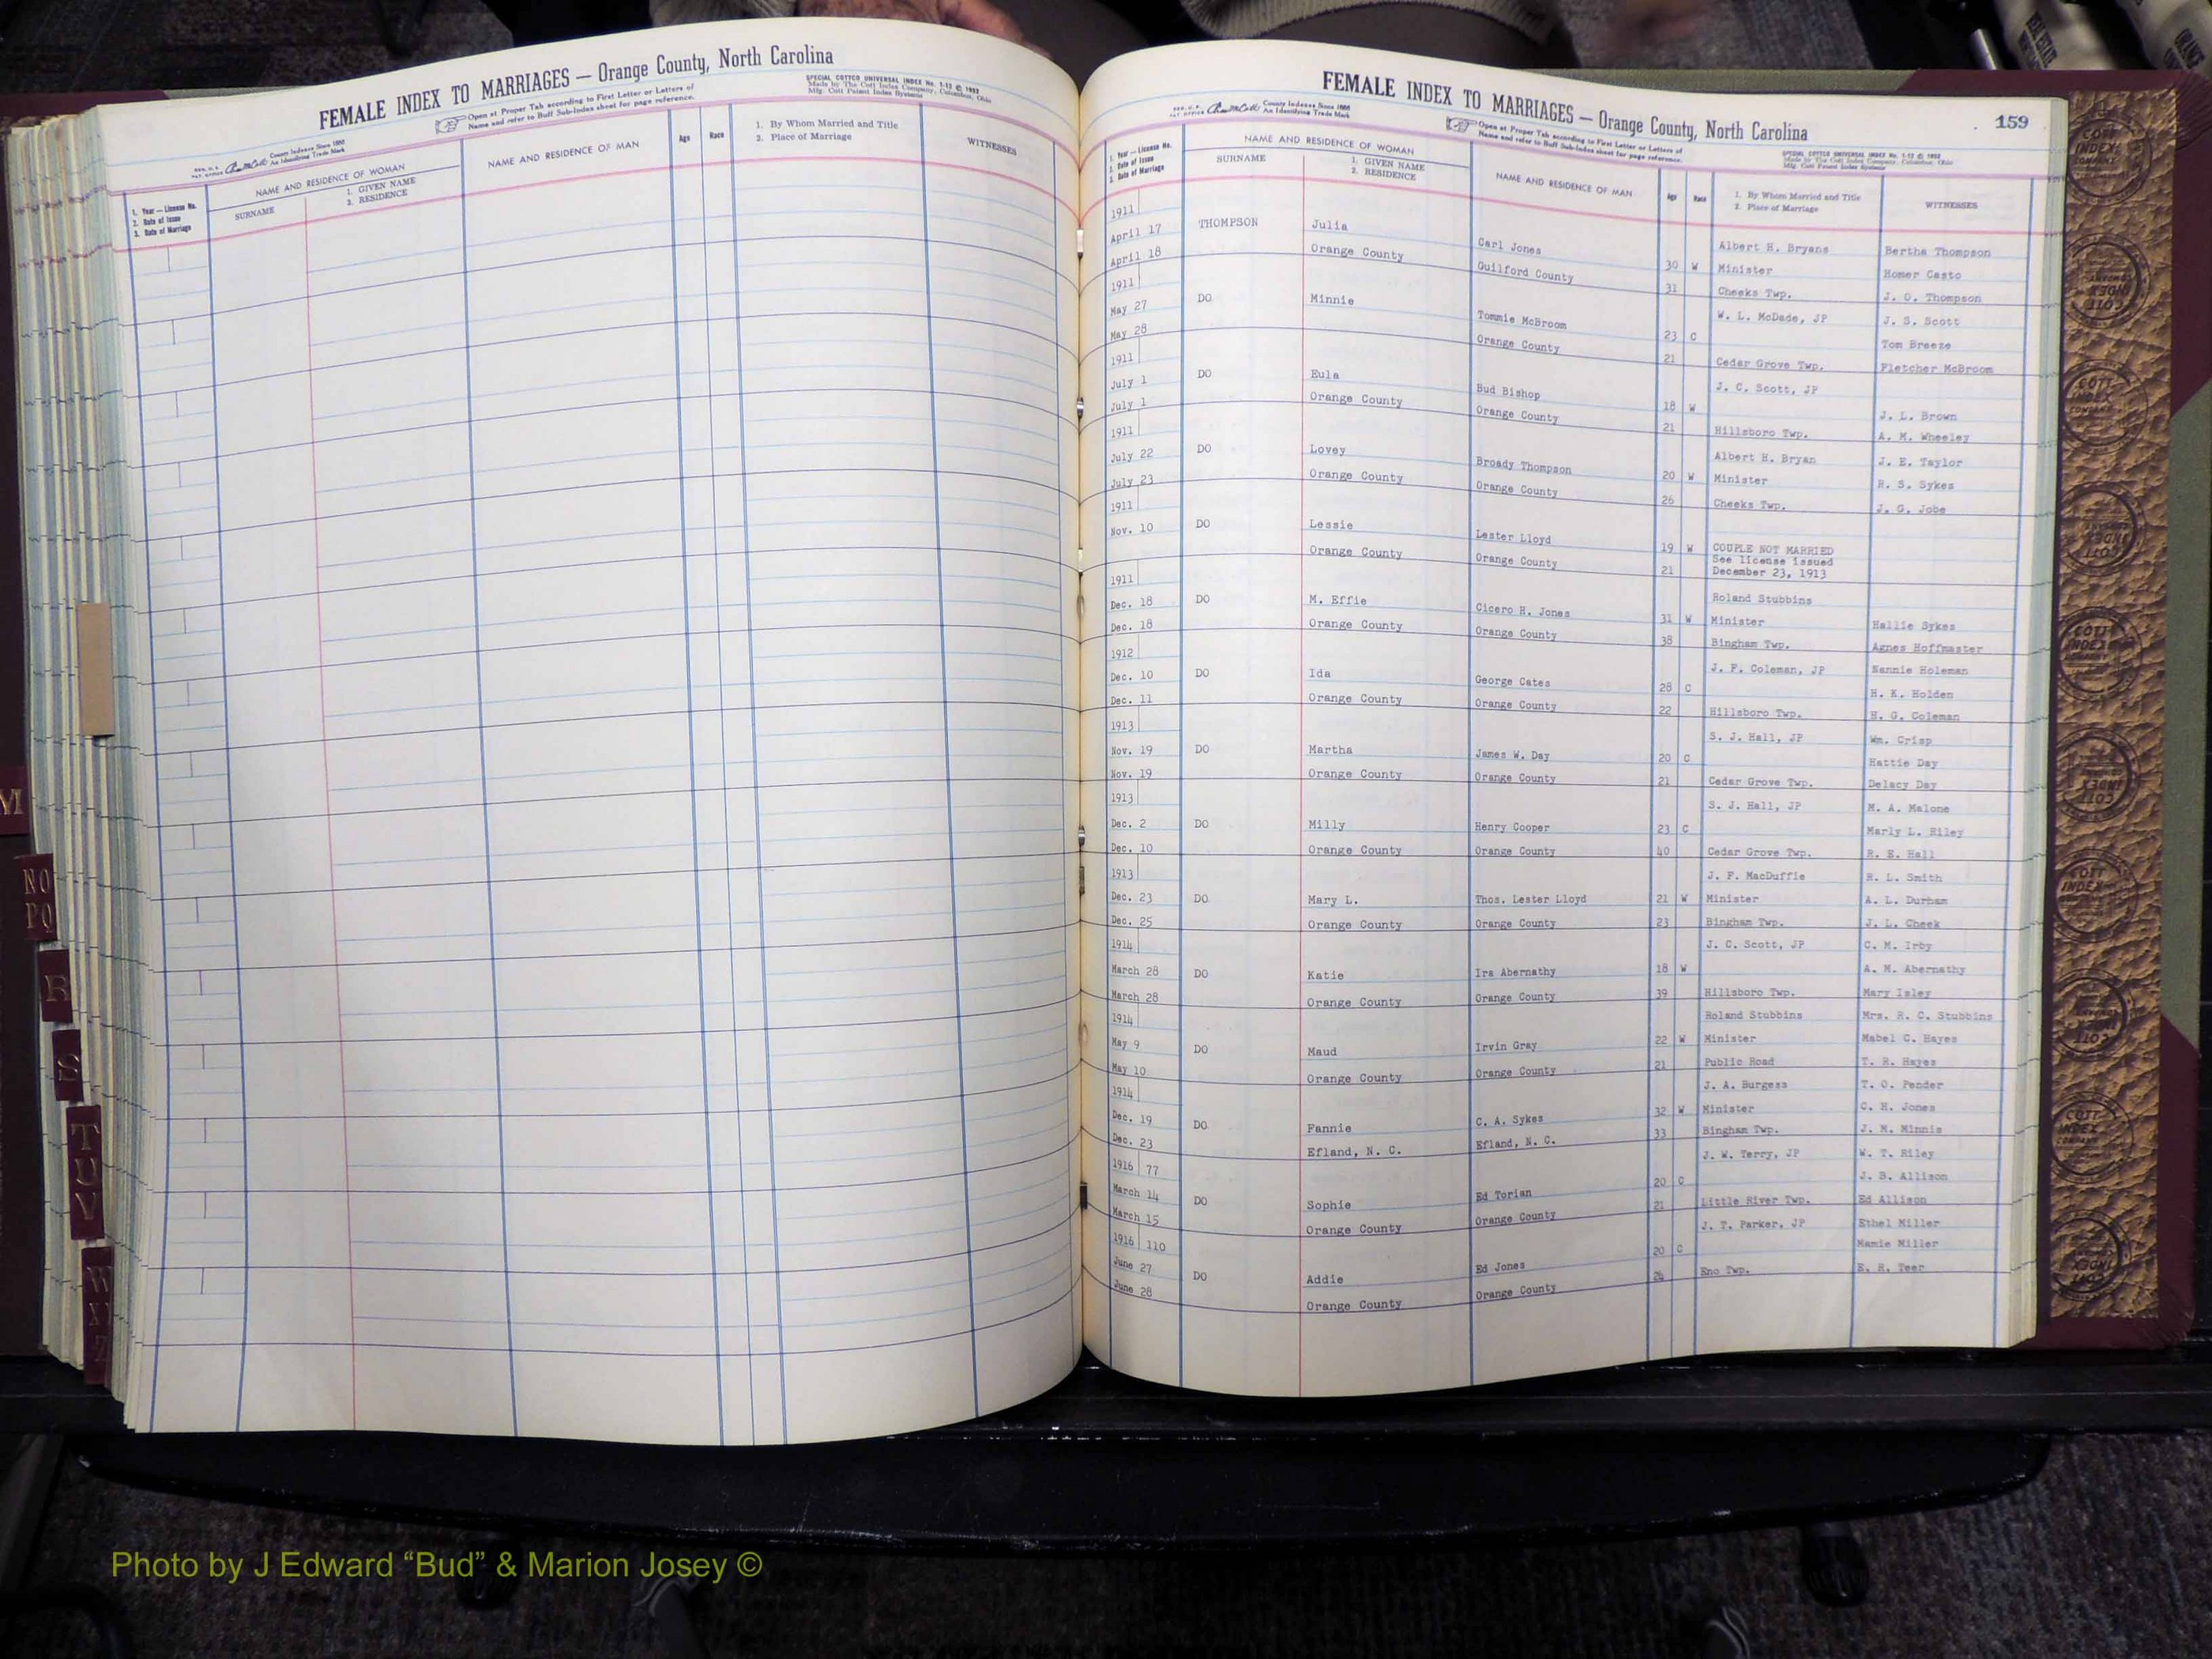 FEMALE INDEX TO MARRIAGES — Orange County, North Carolina
Open at Proper Tab according to First Letter or Letters of
Name and refer to Buff Sub-Index sheet for page reference.
SPECIAL COTTCO UNIVERSAL INDEX No. 1-12 © 1953
Made by The Cott Index Company, Columbus, Ohio
Mfg. Cott Patent Index Systems
County Indexes Since 1888
An Identifying Trade Mark
1. Year — License No.
2. Date of Issue
3. Date of Marriage
NAME AND RESIDENCE OF WOMAN
SURNAME
1. GIVEN NAME
2. RESIDENCE
NAME AND RESIDENCE OF MAN
Age
Race
1. By Whom Married and Title
2. Place of Marriage
WITNESSES
FEMALE INDEX TO MARRIAGES — Orange County, North Carolina
159
County Indexes Since 1888
An Identifying Trade Mark
Open at Proper Tab according to First Letter or Letters of
Name and refer to Buff Sub-Index sheet for page reference.
SPECIAL COTTCO UNIVERSAL INDEX No. 1-12 © 1953
Made by The Cott Index Company, Columbus, Ohio
Mfg. Cott Patent Index Systems
1. Year — License No.
2. Date of Issue
3. Date of Marriage
NAME AND RESIDENCE OF WOMAN
SURNAME
1. GIVEN NAME
2. RESIDENCE
NAME AND RESIDENCE OF MAN
Age
Race
1. By Whom Married and Title
2. Place of Marriage
WITNESSES
1911 Albert H. Bryans Bertha Thompson
April 17 THOMPSON Julia Carl Jones 30 W Minister Homer Casto
April 18 Orange County Guilford County 31 Cheeks Twp. J. O. Thompson
1911 W. L. McDade, JP J. S. Scott
May 27 DO Minnie Tommie McBroom 23 C Tom Breeze
May 28 Orange County 21 Cedar Grove Twp. Fletcher McBroom
1911 J. C. Scott, JP
July 1 DO Eula Bud Bishop 18 W J. L. Brown
July 1 Orange County Orange County 21 Hillsboro Twp. A. M. Wheeley
1911 Albert H. Bryan J. E. Taylor
July 22 DO Lovey Broady Thompson 20 W Minister R. S. Sykes
July 23 Orange County Orange County 26 Cheeks Twp. J. G. Jobe
1911
Nov. 10 DO Lessie Lester Lloyd 19 W COUPLE NOT MARRIED
See license issued
Orange County Orange County 21 December 23, 1913
1911 Roland Stubbins
Dec. 18 DO M. Effie Cicero H. Jones 31 W Minister Hallie Sykes
Dec. 18 Orange County Orange County 38 Bingham Twp. Agnes Hoffmaster
1912 J. F. Coleman, JP Nannie Holeman
Dec. 10 DO Ida George Cates 28 C H. K. Holden
Dec. 11 Orange County Orange County 22 Hillsboro Twp. H. G. Coleman
1913 S. J. Hall, JP Wm. Crisp
Nov. 19 DO Martha James W. Day 20 C Hattie Day
Nov. 19 Orange County Orange County 21 Cedar Grove Twp. Delacy Day
1913 S. J. Hall, JP M. A. Malone
Dec. 2 DO Milly Henry Cooper 23 C Marly L. Riley
Dec. 10 Orange County Orange County 40 Cedar Grove Twp. R. E. Hall
1913 J. F. MacDuffie R. L. Smith
Dec. 23 DO Mary L. Thos. Lester Lloyd 21 W Minister A. L. Durham
Dec. 25 Orange County Orange County 23 Bingham Twp. J. L. Cheek
1914 J. C. Scott, JP C. M. Irby
March 28 DO Katie Ira Abernathy 18 W A. M. Abernathy
March 28 Orange County Orange County 39 Hillsboro Twp. Mary Isley
1914 Roland Stubbins Mrs. R. C. Stubbins
May 9 DO Maud Irvin Gray 22 W Minister Mabel C. Hayes
May 10 Orange County Orange County 21 Public Road T. R. Hayes
1914 J. A. Burgess T. O. Pender
Dec. 19 DO Fannie C. A. Sykes 32 W Minister C. H. Jones
Dec. 23 Efland, N. C. Efland, N. C. 33 Bingham Twp. J. M. Minnis
1916 77 J. W. Terry, JP W. T. Riley
March 14 DO Sophie Ed Torian 20 C J. B. Allison
March 15 Orange County Orange County 21 Little River Twp. Ed Allison
1916 110 J. T. Parker, JP Ethel Miller
June 27 DO Addie Ed Jones 20 C Mamie Miller
June 28 Orange County Orange County Eno Twp. E. R. Teer
M
NO
PQ
R
S
T
U
V
W
X
Z
COTT
INDEX
COMPANY
Photo by J Edward “Bud” & Marion Josey ©